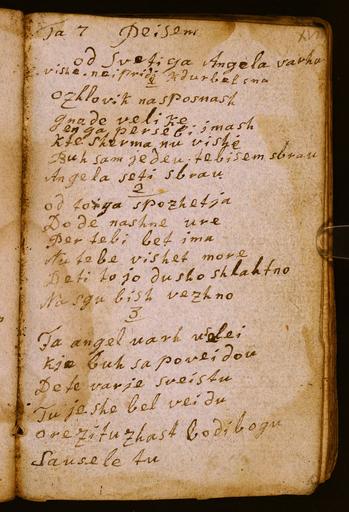 Ta 7 Peisem
od Svetiga Angela varha
vishe. ne pridi k durbel sna
1
O zhlovik nasposnash
gnade velike
en ga persebi imash
kte sherma nu vishe
Buh sam jeden tebi sem sbrau
Angela seti sbrau
2
od toiga spozhetja
Do de nashne ure
Per tebi bet ima
Nu tebe vishet more
Deti to jo dusho shlahtno
Na sgubish vezhno
3
Ta angel varh velei
Kie buh sapoveidou
De te varje sveistu
Tu je she bel veidu
orezi tu zhast bodi bogu
Sa usele tu